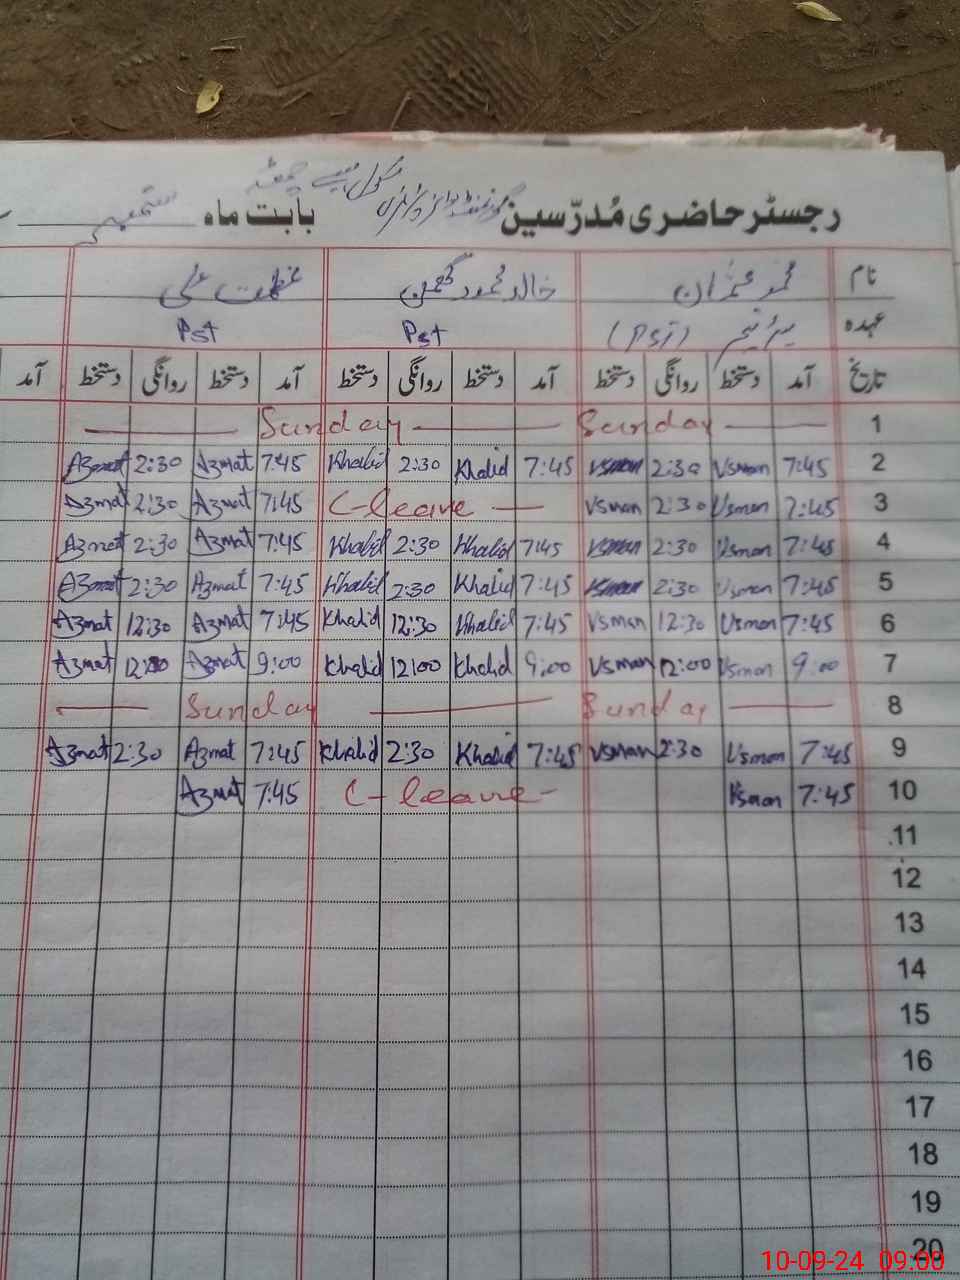 رجسٹر حاضری مُدرّسین گورنمنٹ بابت ماہ ستمبر
نام خالد محمود گھمن عظمت علی
عہدہ (PST) Pst Pst
تاریخ آمد دستخط روانگی دستخط آمد دستخط روانگی دستخط آمد دستخط روانگی دستخط آمد
1 Sunday Sunday
2 7:45 Usman 2:30 Usman 7:45 Khalid 2:30 Khalid 7:45 Azmat 2:30 Azmat
3 7:45 Usman 2:30 Usman C-leave 7:45 Azmat 2:30 Azmat
4 7:45 Usman 2:30 Usman 7:45 Khalid 2:30 Khalid 7:45 Azmat 2:30 Azmat
5 7:45 Usman 2:30 Usman 7:45 Khalid 2:30 Khalid 7:45 Azmat 2:30 Azmat
6 7:45 Usman 12:30 Usman 7:45 Khalid 12:30 Khalid 7:45 Azmat 12:30 Azmat
7 9:00 Usman 12:00 Usman 9:00 Khalid 12:00 Khalid 9:00 Azmat 12:00 Azmat
8 Sunday Sunday
9 7:45 Usman 2:30 Usman 7:45 Khalid 2:30 Khalid 7:45 Azmat 2:30 Azmat
10 7:45 Usman C-leave 7:45 Azmat
11
12
13
14
15
16
17
18
19
20
10-09-24 09:00